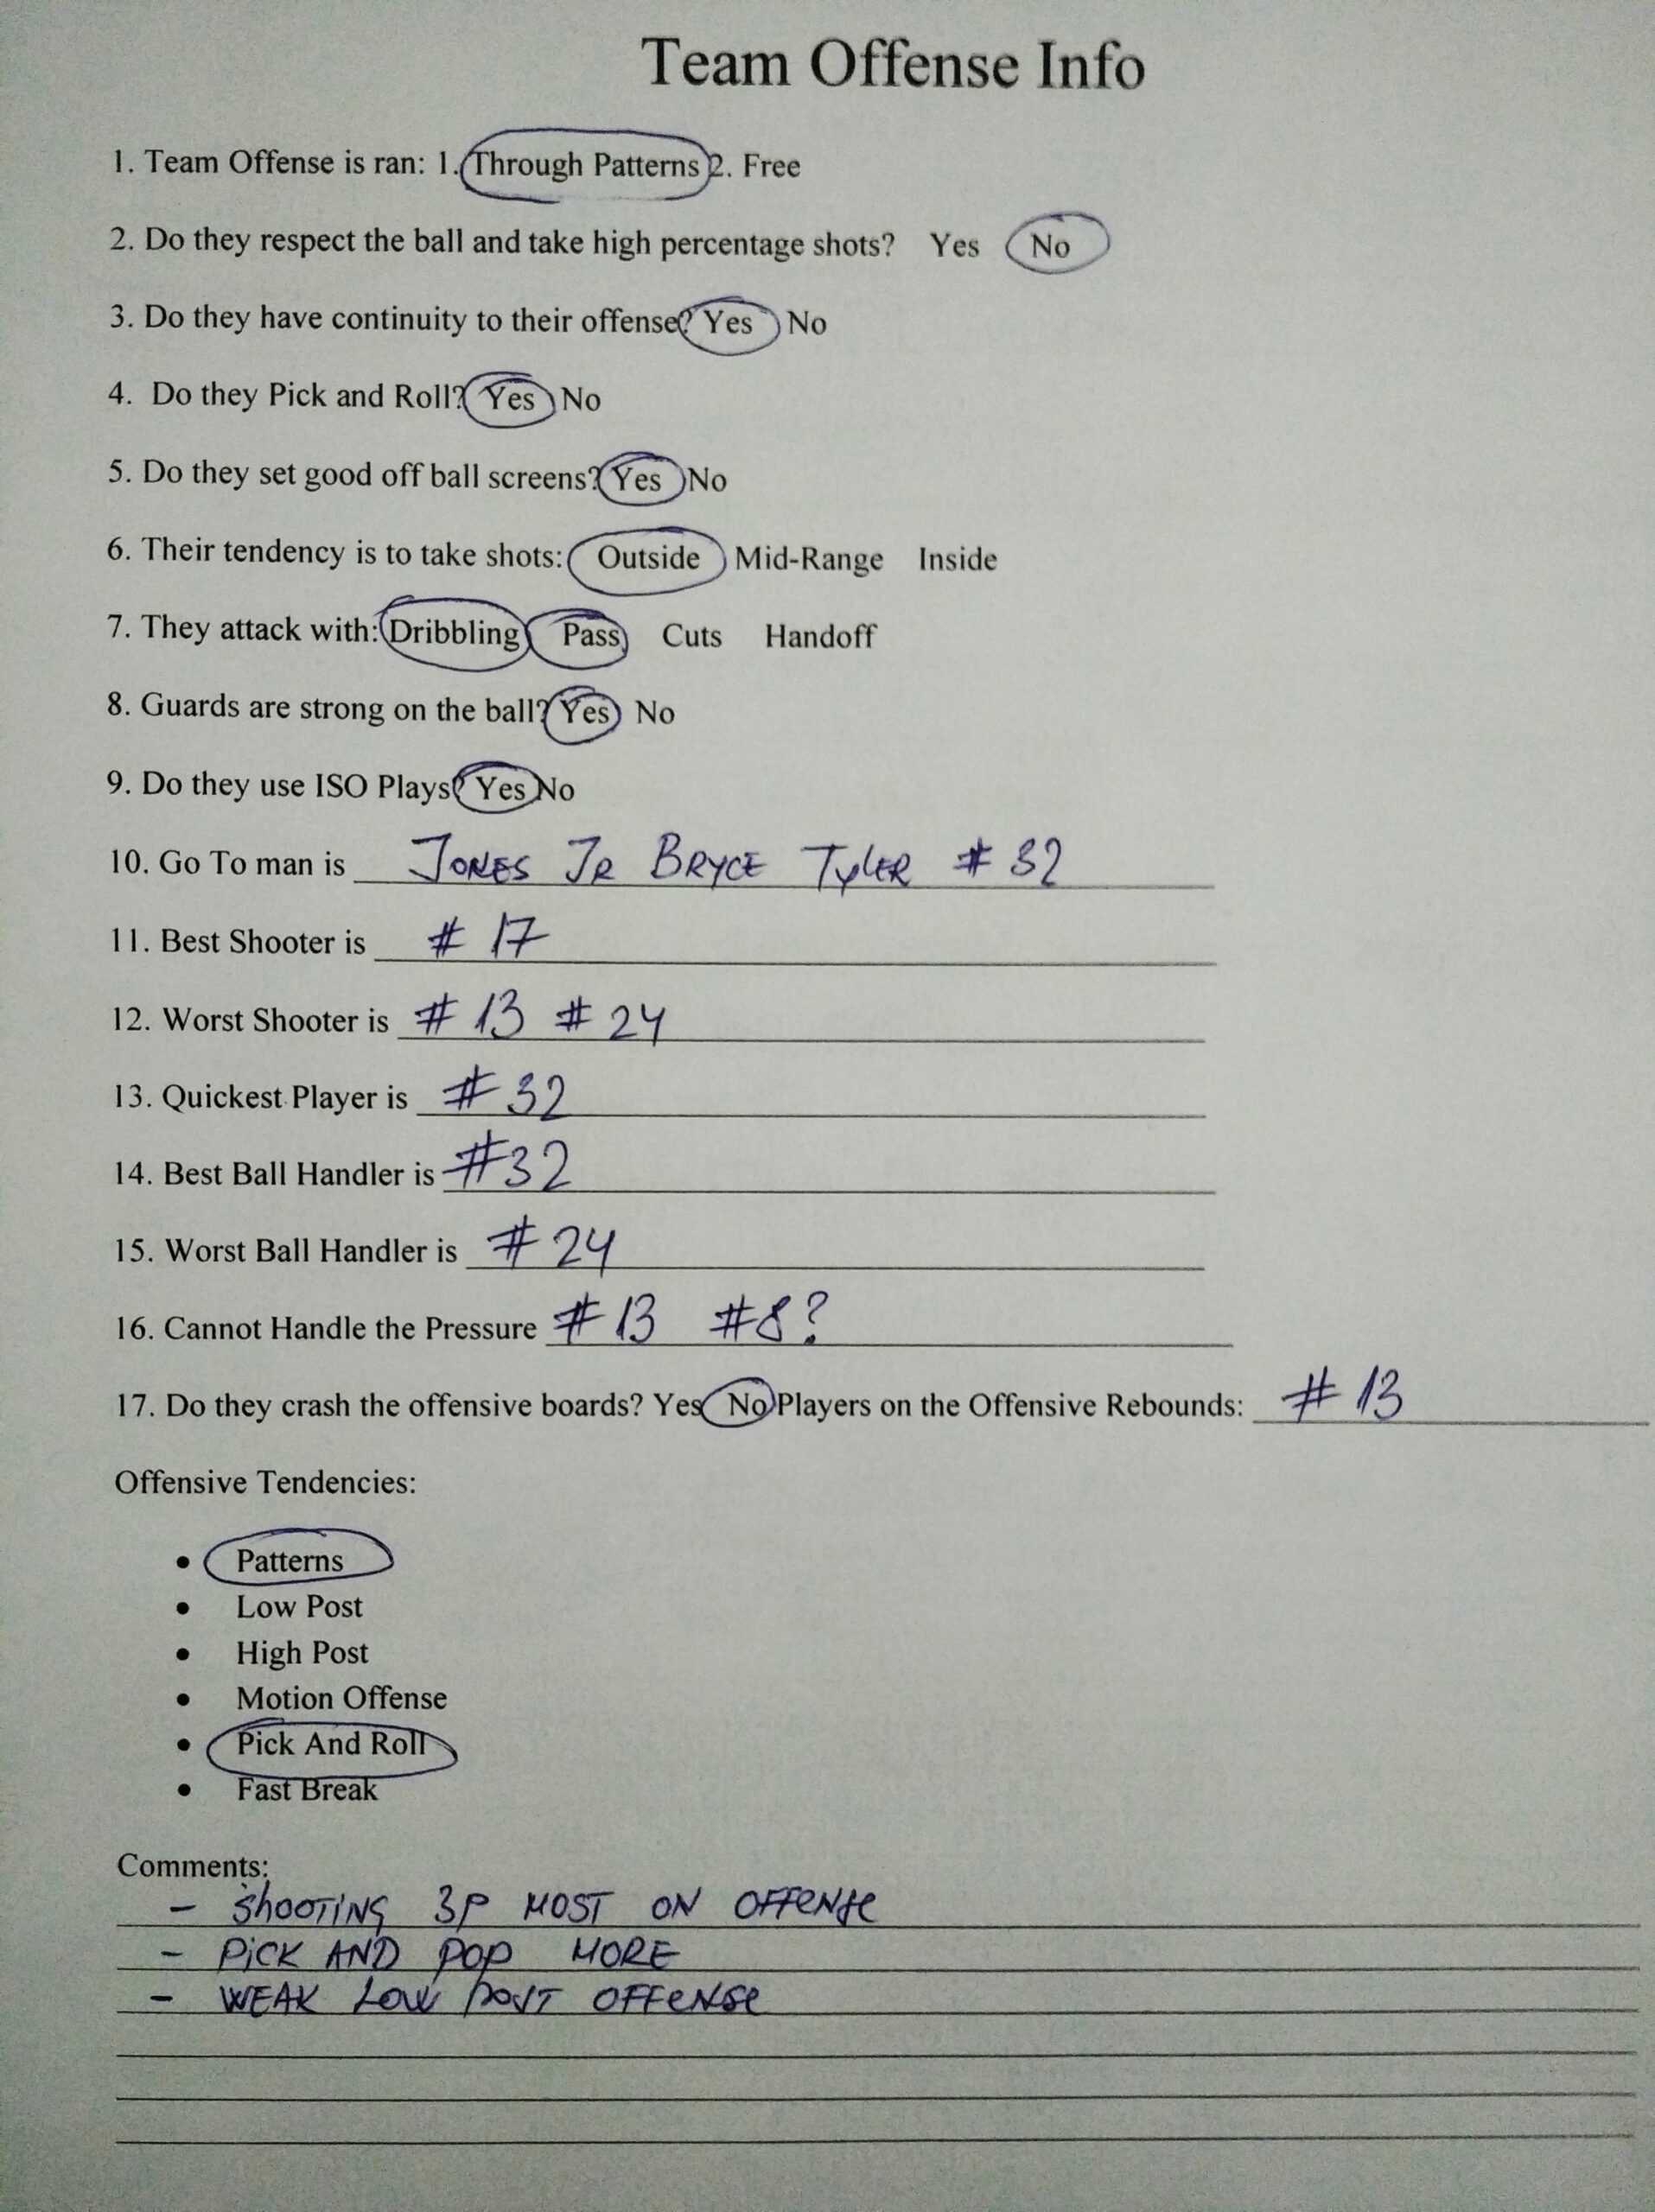 Team Offense Info
1. Team Offense is ran: 1. Through Patterns 2. Free
2. Do they respect the ball and take high percentage shots? Yes No
3. Do they have continuity to their offense? Yes No
4. Do they Pick and Roll? Yes No
5. Do they set good off ball screens? Yes No
6. Their tendency is to take shots: Outside Mid-Range Inside
7. They attack with: Dribbling Pass Cuts Handoff
8. Guards are strong on the ball? Yes No
9. Do they use ISO Plays? Yes No
10. Go To man is JONES JR BRYCE TyLER # 32
11. Best Shooter is # 17
12. Worst Shooter is # 13 # 24
13. Quickest Player is # 32
14. Best Ball Handler is #32
15. Worst Ball Handler is # 24
16. Cannot Handle the Pressure # 13 #8?
17. Do they crash the offensive boards? Yes No Players on the Offensive Rebounds: # 13
Offensive Tendencies:
• Patterns
• Low Post
• High Post
• Motion Offense
• Pick And Roll
• Fast Break
Comments:
- ShOOTiNG 3P MOST ON OFFeNSe
- PiCK AND POP MORE
- WEAK LOW POST OFFeNSe